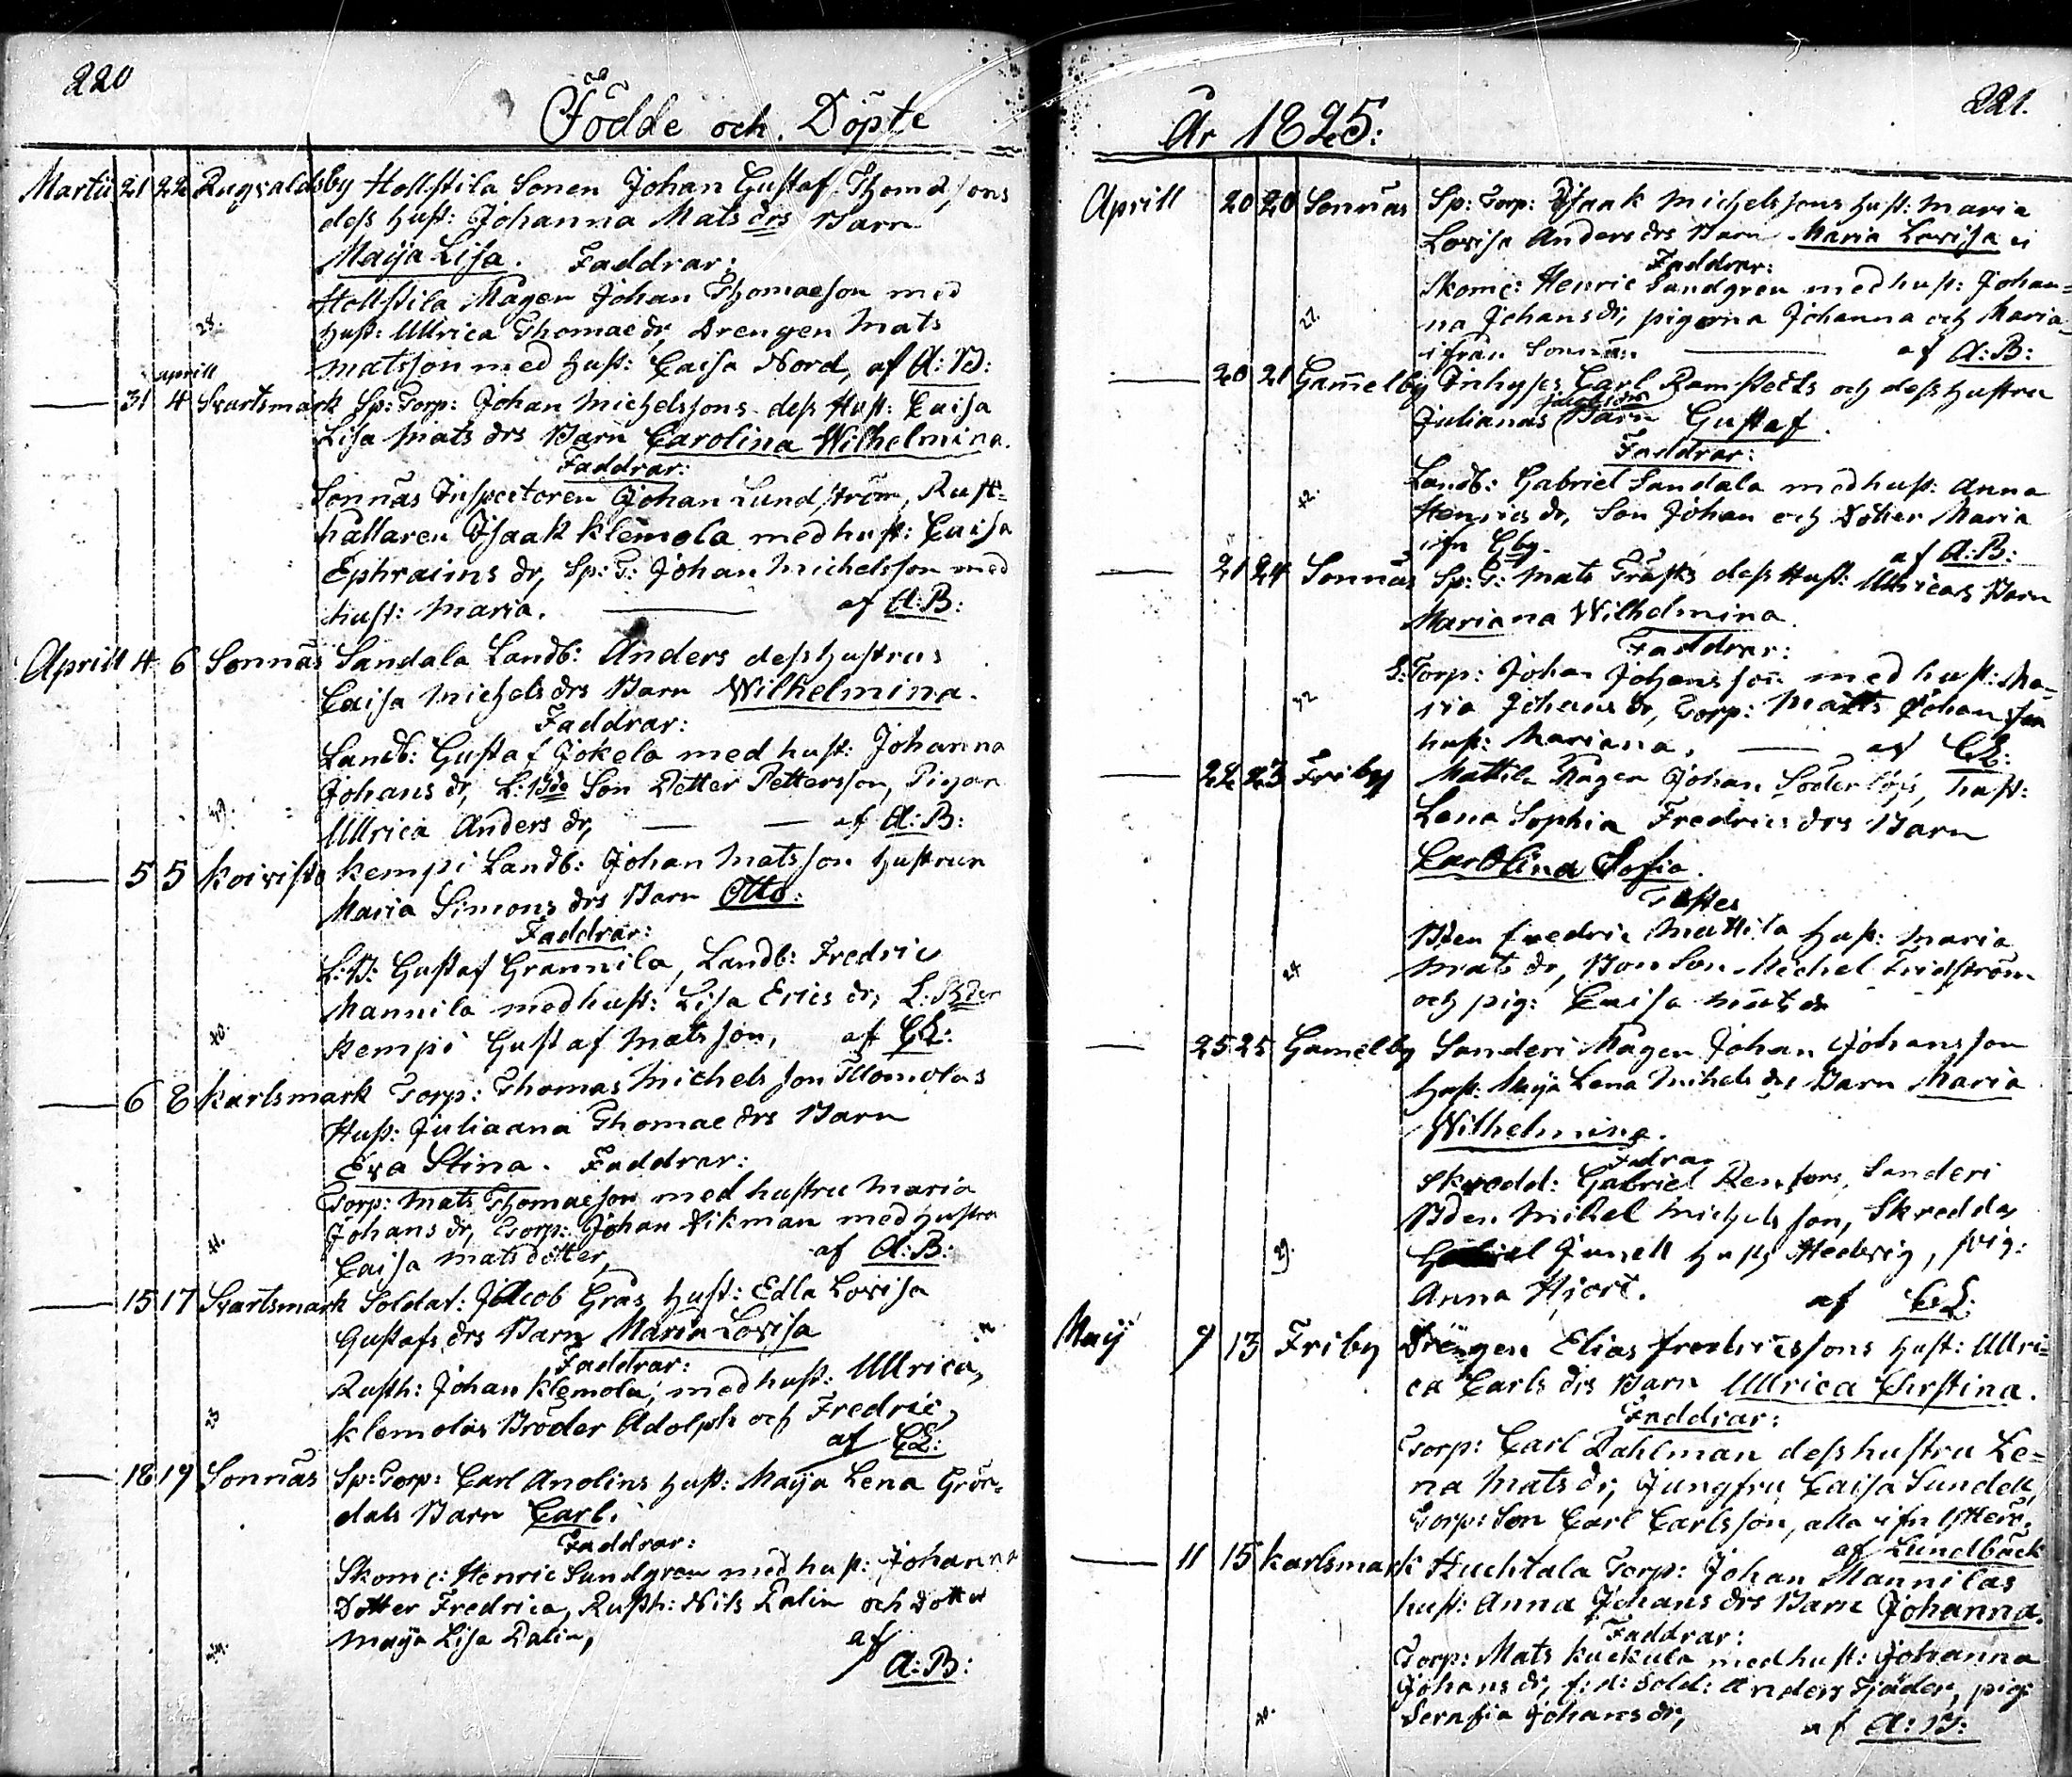 220
Födde och Döpte
Martii 21 22 Rugsaldsby Hollstila Sonen Johan Gustaf Thomæsons
dess hust: Johanna Mats drs Barn
Maija Lisa. Faddrar:
Hollstila Mågen Johan Thomaeson med
28. hust: Ullrica Thomae dr, Drengen Mats
Matsson med hust: Caisa Nord, af A: B:
— 31 aprill 4 Svartsmark Sp: Torp: Johan Michelssons dess Hust: Caisa
Lisa Mats drs Barn Carolina Wilhelmina.
Faddrar:
Sonnäs Inspectoren Johan Lundström, Rust=
hållaren Isaak Klemola med hust: Caisa
Ephraims dr, Sp: T: Johan Michelsson med
hust: Maria. — af A: B:
Aprill 4 6 Sonnäs Sandala Landb: Anders dess hustrus
Caisa Michels drs Barn Wilhelmina.
Faddrar:
Landb: Gustaf Jokela med hust: Johanna
Johans dr, L: Bde Son Petter Pettersson, Pigan
Ullrica Anders dr, — — af A: B:
— 5 5 Koivisto Kempi Landb: Johan Matsson hustrur
Maria Simons drs Barn Otto:
Faddrar:
L: B: Gustaf Grannila, Landb: Fredric
Mannila med hust: Lisa Erics dr, L: Bden
40. Kempi Gustaf Matsson, af CL:
— 6 8 Karlsmark Torp: Thomas Michelsson Illomolas
Hust: Juliaana Thomae drs Barn
Eva Stina. Faddrar:
Torp: Mats Thomaeson med hustru Maria
Johans dr, Torp: Johan Vikman med hustru
41. Caisa Matsdotter, af A: B:
— 15 17 Svartsmark Soldat: Jacob Gräs hust: Edla Lovisa
Gustafs drs Barn Maria Lovisa
Faddrar:
Rusth: Johan Klemola, med hust: Ullrica,
23 Klemolas Bröder Adolph och Fredric,
af CL:
— 18 19 Sonnäs Sp: Torp: Carl Anolins hust: Maija Lena Grön=
dals Barn Carl.
Faddrar:
Skome: Henric Sundgren med hust: Johanna
Dotter Fredrica, Rusth: Nils Dalin och Dotter
Maija Lisa Dalin, af
A: B:
221.
År 1825:
Aprill 20 20 Sonnäs Sp: Torp: Isaak Michelssons hust: Maria
Lovisa Anders drs Barn Maria Lovisa
Faddrar:
Skome: Henric Sundgren med hust: Johan=
27. na Johans dr, pigorna Johanna och Maria
ifrån Sonnäs — af A: B:
— 20 21 Gamelby Inhyses Carl Ramstedts och dess hustru
Julianas Jacobsdrs Barn Gustaf.
Faddrar:
Landb: Gabriel Sandala med hust: Anna
42. Henrics dr, Son Johan och Dotter Maria
ifn Gby. af A: B:
— 21 24 Sonnäs Sp: T: Mats Träsks dess Hust: Ullricas Barn
Mariana Wilhelmina.
Faddrar:
S: Torp: Johan Johansson med hust: Ma=
32 ria Johans dr, Torp: Matts Johansson
hust: Mariana, — af CL:
— 22 23 Friby Mattila Mågen Johan Söderlöfs, hust:
Lena Sophia Fredrics drs Barn
Carolina Sofia.
Testes
Bden Fredric Mattila hust: Maria
24 Mats dr, Bonson Michel Fridström
och pig: Caisa Mats dr
— 25 25 Gamelby Sanderi Mågen Johan Johansson
hust: Maija Lena Michels drs Barn Maria
Wilhelmina.
Fadrar
Skredd: Gabriel Renfors, Sanderi
Bden Mikel Michelsson, Skreddar
29. Gabriel Junell hust: Hedvig, pig:
Anna Hjort. af CL:
Maij 9 13 Friby Drängen Elias Fredricssons hust: Ullri=
ca Carls drs Barn Ullrica Christina.
Faddrar:
Torp: Carl Dahlman dess hustru Le=
na Mats dr, Jungfru Caisa Sundell,
Torp: Son Carl Carlsson, alla ifn
af Lundbäck
— 11 15 Karlsmark Huchtala Torp: Johan Mannilas
hust: Anna Johans drs Barn Johanna.
Faddrar:
Torp: Mats Kuckula med hust: Johanna
Johans dr, f: d: Sold: Anders Tjäder, pig:
Serafia Johans dr, af A: B: